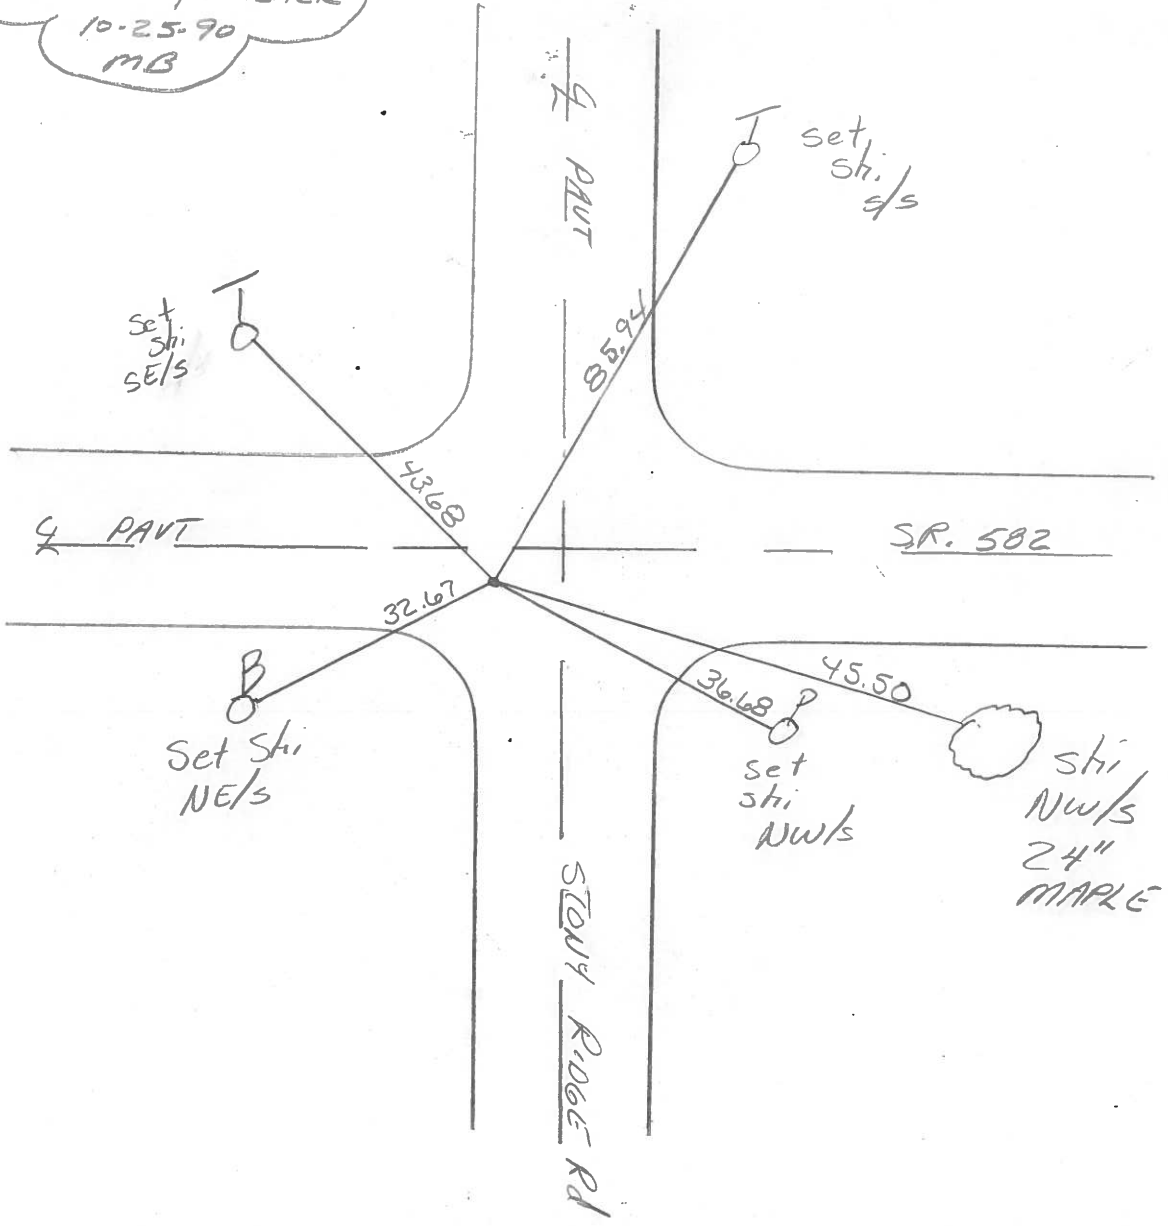 10-25-90
MB
℄ PAVT
T
set
shi
s/s
T
set
shi
SE/s
85.94
43.68
℄ PAVT
S.R. 582
32.67
B
Set Shi
NE/s
36.68
P
set
shi
NW/s
45.50
shi
NW/s
24"
MAPLE
STONY RIDGE Rd